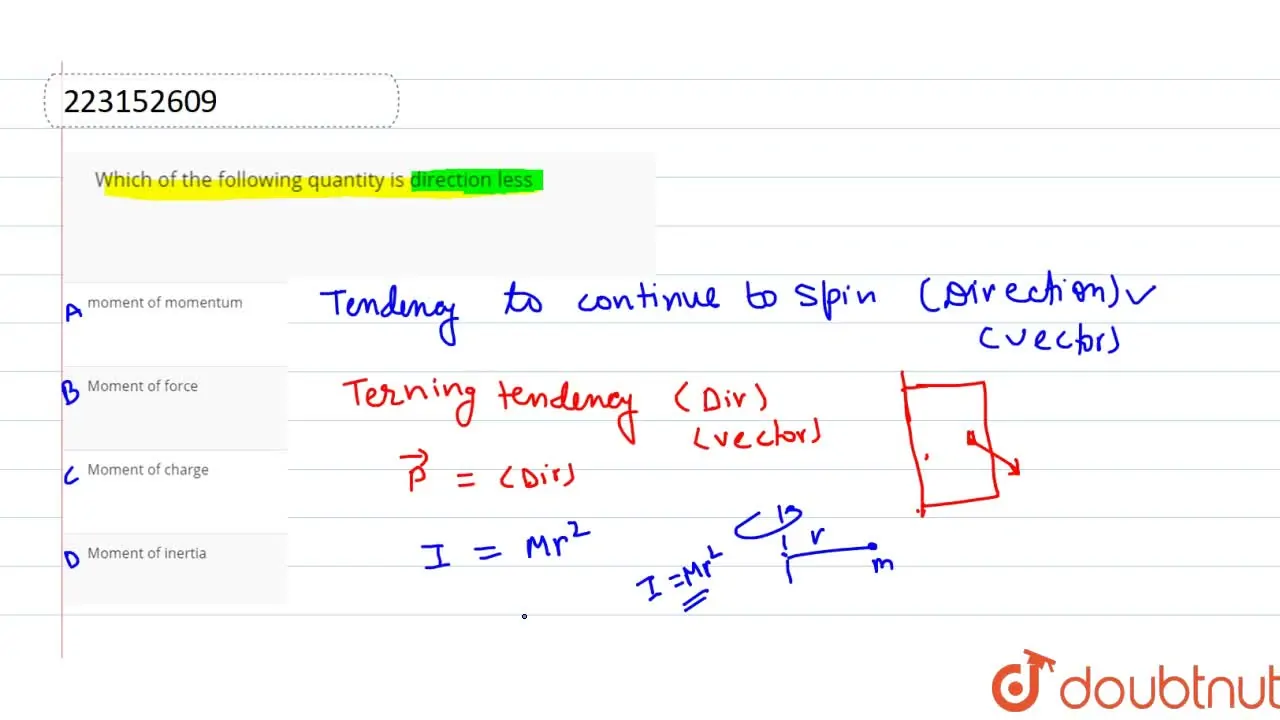 223152609
Which of the following quantity is direction less
A moment of momentum
Tendency to continue to spin (Direction) ✓
(vector)
B Moment of force
Terning tendency (Dir)
(vector)
C Moment of charge
P⃗ = (Dir)
D Moment of inertia
I = Mr²
I = Mr²
r
m
doubtnut